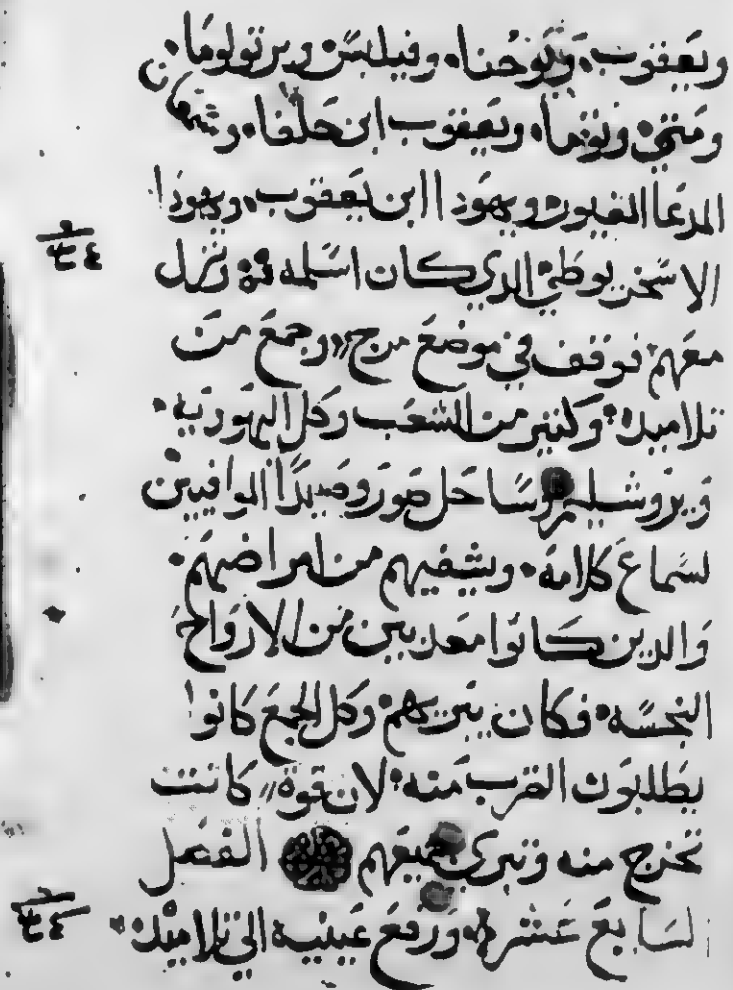 ويعقوب، ويوحنا، وفيلبس وبرتولوما،
ومتى، وتوما، ويعقوب ابن حلفا، وشمعون
المدعا الغيور، ويهودا ابن يعقوب، ويهودا
الاسخريوطي، الذي كان اسلمه، ونزل
معهم، فوقف في موضع مرج، وجمع من
تلاميده، وكثير من الشعب وكل اليهوديه،
ويروشليم وساحل صور وصيدا الوافيين
لسماع كلامه، ويشفيهم من امراضهم،
والدين كانوا معدبين من الارواح
النجسه، فكان يبريهم، وكل الجمع كانوا
يطلبون القرب منه، لان قوة، كانت
تخرج منه وتبرى جميعهم الفصل
السابع عشر، ورفع عينيه الى تلاميده،